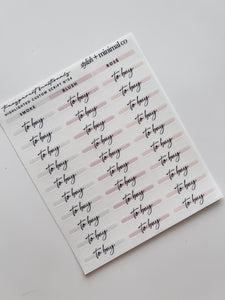 transparent functionals
HIGHLIGHTED CUSTOM SCRIPT
+ minimal co
SMOKE BLUSH ROSE
to buy to buy to buy
to buy to buy to buy
to buy to buy to buy
to buy to buy to buy
to buy to buy to buy
to buy to buy to buy
to buy to buy to buy
to buy to buy to buy
to buy to buy to buy
to buy to buy to buy